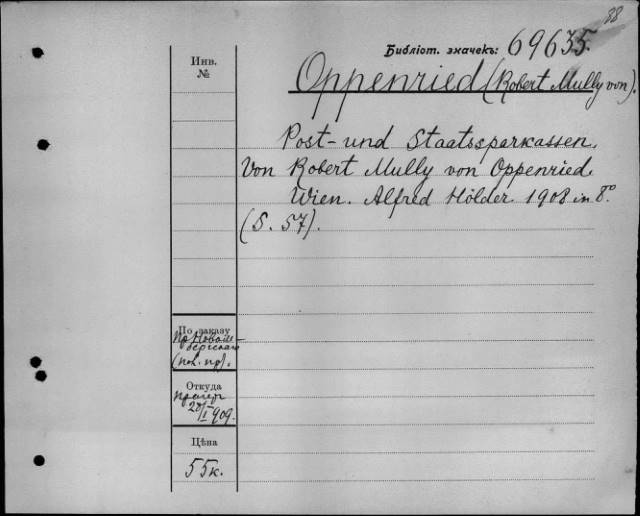 88
Библіот. значекъ: 69635.
Инв.
№
Oppenried (Robert Mully von).
Post- und Staatssparkassen.
Von Robert Mully von Oppenried.
Wien. Alfred Hölder. 1908 in 8°
(S. 57).
По заказу
Откуда
1909.
Цѣна
55к.